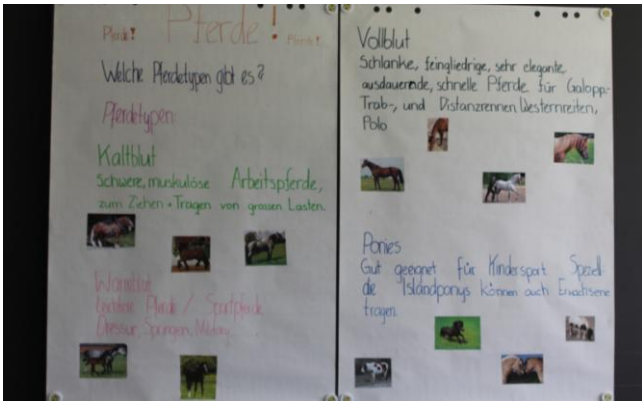 Pferde! Pferde! Pferde!
Welche Pferdetypen gibt es?
Pferdetypen:
Kaltblut
Schwere, muskulöse Arbeitspferde,
zum Ziehen + Tragen von grossen Lasten.
Warmblut
Leichtere Pferde / Sportpferde
Dressur, Springen, Military
Vollblut
Schlanke, feingliedrige, sehr elegante,
ausdauernde, schnelle Pferde für Galopp-
Trab-, und Distanzrennen, Westernreiten,
Polo
Ponies
Gut geeignet für Kindersport. Speziell
die Islandponys können auch Erwachsene
tragen.